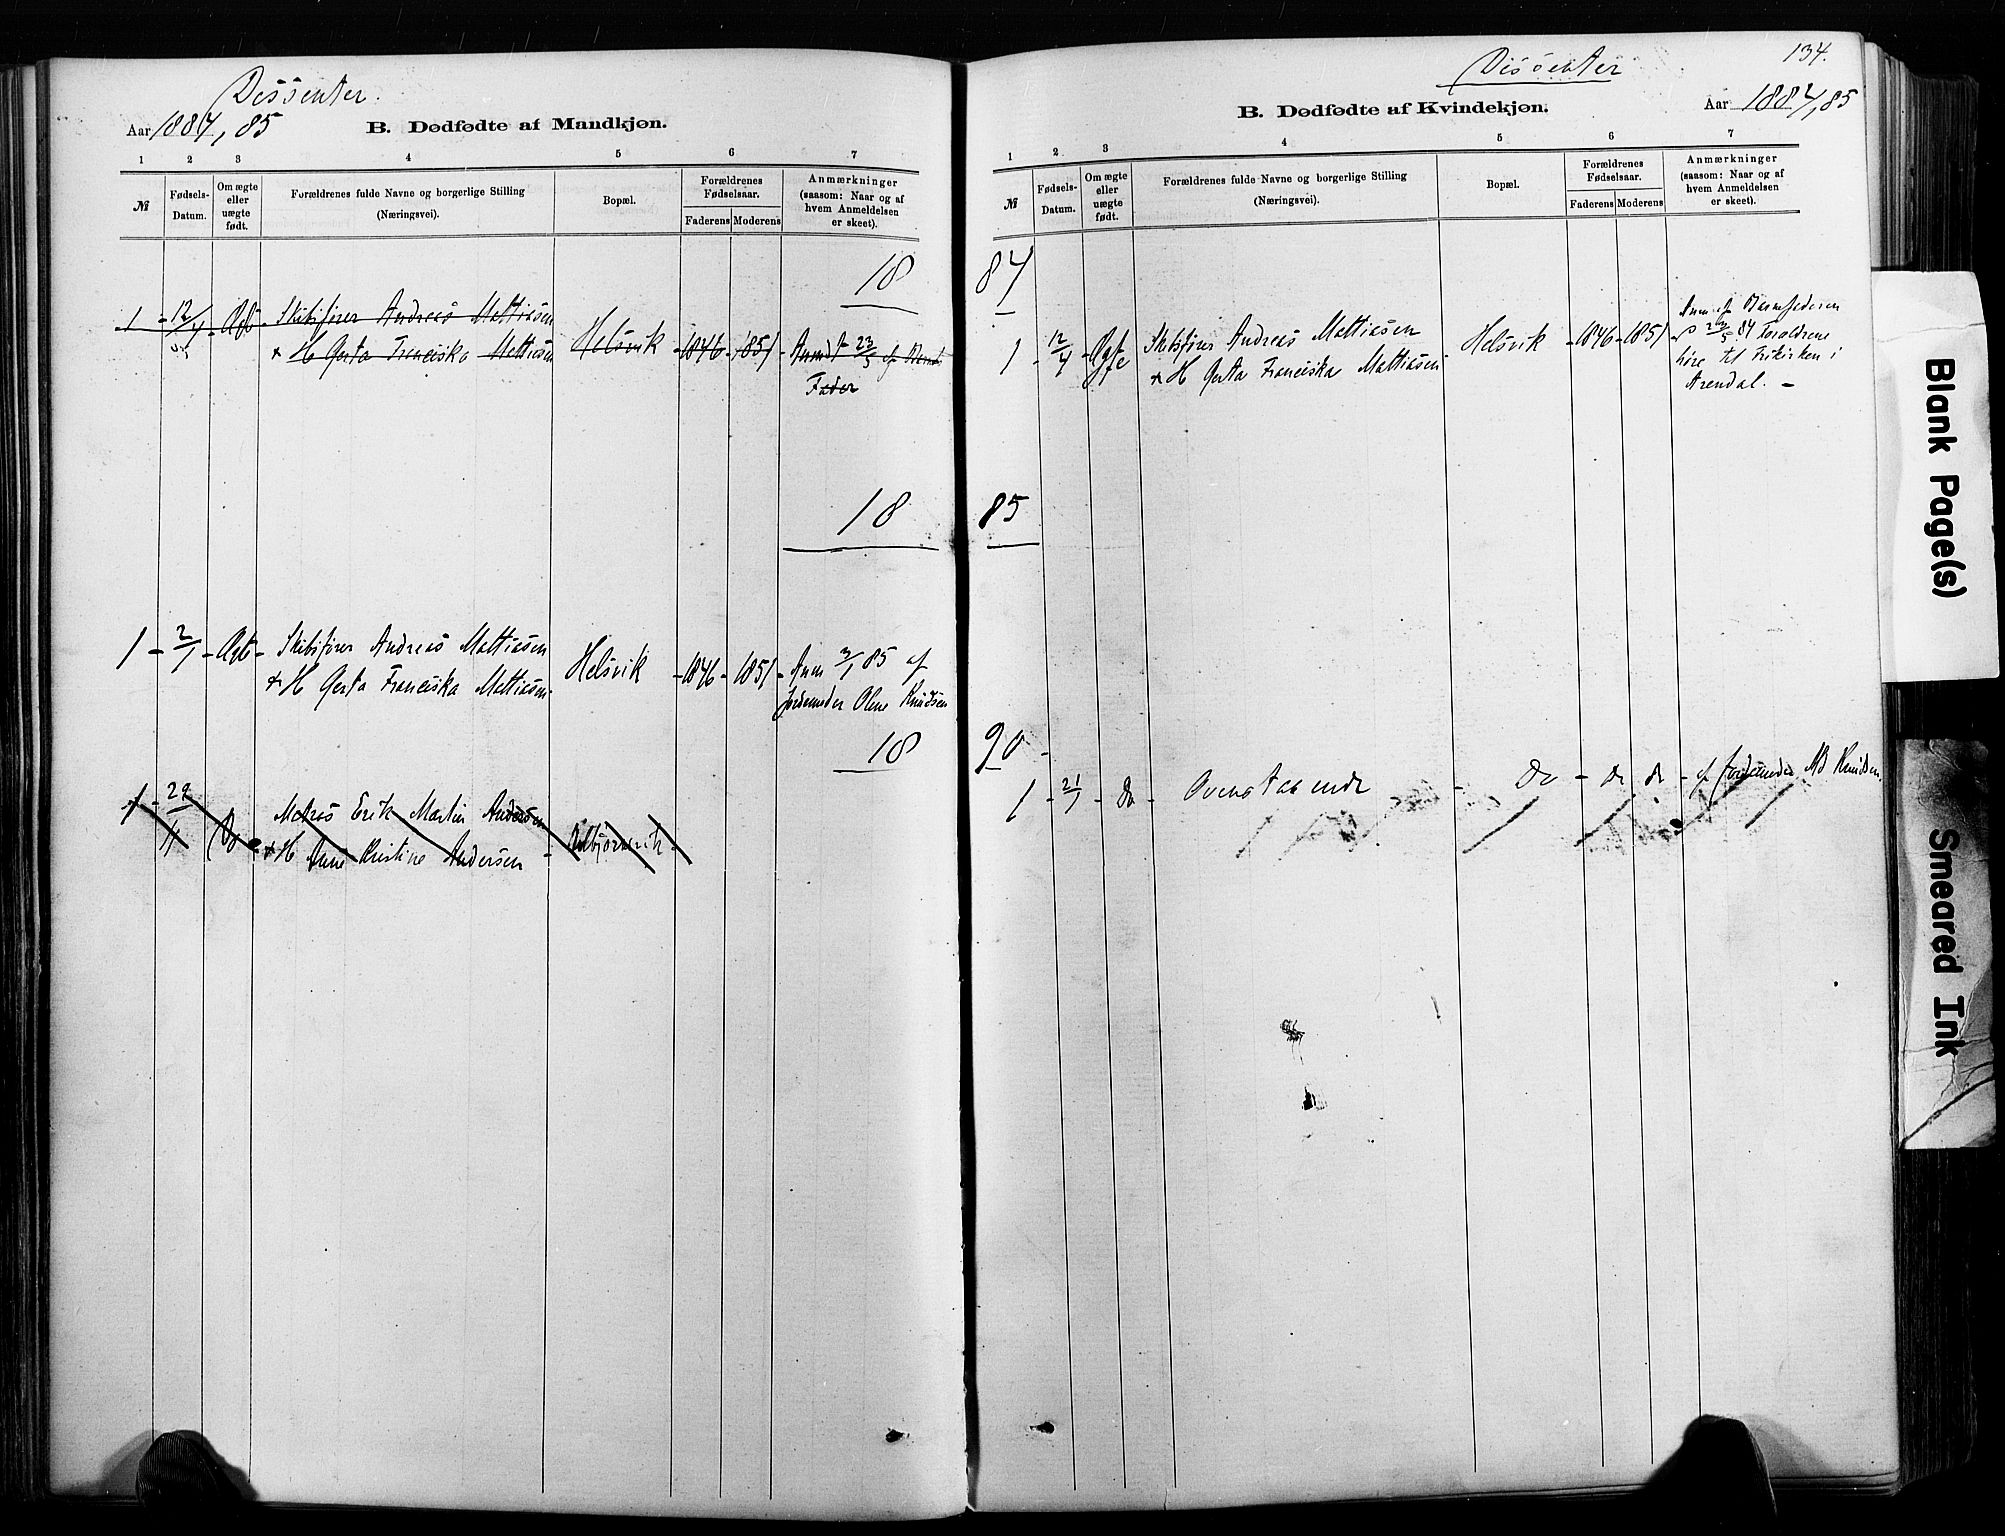 Dissenter.
Aar 1884, 85
B. Dødfødte af Mandkjøn.
1 2 3 4 5 6 7
№
Fødsels-Datum.
Om ægte eller uægte født.
Forældrenes fulde Navne og borgerlige Stilling
(Næringsvei).
Bopæl.
Forældrenes Fødselsaar.
Faderens Moderens
Anmærkninger
(saasom: Naar og af
hvem Anmeldelsen
er skeet).
18
1 - 12/4 - Ægte - Skibsfører Andreas Mattiasen
& H Gerta Franciska Mattiasen
Helsvik - 1846 - 1851 - Anmdt 23/5 af
Fader
18
1 - 2/1 - Ægte - Skibsfører Andreas Mattiasen
& H Gerta Franciska Mattiasen
Helsvik - 1846 - 1851 - Anm 3/1 85 af
Jordemoder Olene Knudsen
18
1 - 29/11 Do Matros Erik Martin Andersen
& H Anne Kristine Andersen -
Dissenter
134.
B. Dødfødte af Kvindekjøn.
Aar 1884, 85
1 2 3 4 5 6 7
№
Fødsels-Datum.
Om ægte eller uægte født.
Forældrenes fulde Navne og borgerlige Stilling
(Næringsvei).
Bopæl.
Forældrenes Fødselsaar.
Faderens Moderens
Anmærkninger
(saasom: Naar og af
hvem Anmeldelsen
er skeet).
84
1 - 12/4 - Ægte Skibsfører Andreas Mattiasen
& H Gerta Franciska Mattiasen
Helsvik - 1846 - 1851
Anm af Barnefaderen
23/5 84 Forældrene
høre til Frikirken i
Arendal. -
85
90
1 - 2/1 - do - Ovenstaaende - do - do do - af Jordemoder Knudsen
Blank Page(s)
Smeared Ink